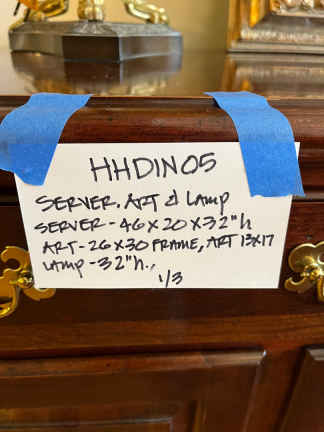 HHDIN05
SERVER, ART & LAMP
SERVER - 46 X 20 X 32" h
ART - 26 X 30 FRAME, ART 13X17
LAMP - 32" h.
1/3